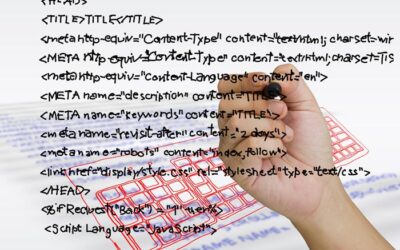 <HEAD>
<TITLE>TITLE</TITLE>
<meta http-equiv="Content-Type" content="text/html; charset=wir
<META http-equiv="Content-Type" content="text/html;charset=Tis
<meta http-equiv="Content-Language" content="en">
<META name="description" content="TITLE
<META name="keywords" content="TITLE">
<meta name="revisit-after" content="2 days">
<meta name="robots" content="index,follow">
<link href="display/style.css" rel="stylesheet" type="text/css">
</HEAD>
<%if Request("Back") = "1"
<Script Language="JavaScript">